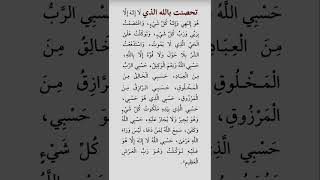 تحصنت بالله الذي لَا إِلَهَ إِلَّا
هُوَ إِلَهِي وَإِلَهُ كُلِّ شَيْءٍ، وَاعْتَصَمْتُ
بِرَبِّي وَرَبِّ كُلِّ شَيْءٍ، وَتَوَكَّلْتُ عَلَى
الْحَيِّ الَّذِي لَا يَمُوتُ، وَاسْتَدْفَعْتُ
الشَّرَّ بِلَا حَوْلَ وَلَا قُوَّةَ إِلَّا بِاللَّهِ،
حَسْبِيَ اللَّهُ وَنِعْمَ الْوَكِيلُ، حَسْبِيَ الرَّبُّ
مِنَ الْعِبَادِ، حَسْبِيَ الْخَالِقُ مِنَ
الْمَخْلُوقِ، حَسْبِيَ الرَّازِقُ مِنَ
الْمَرْزُوقِ، حَسْبِيَ الَّذِي هُوَ حَسْبِي،
حَسْبِيَ الَّذِي بِيَدِهِ مَلَكُوتُ كُلِّ شَيْءٍ
وَهُوَ يُجِيرُ وَلَا يُجَارُ عَلَيْهِ، حَسْبِيَ اللَّهُ
وَكَفَى، سَمِعَ اللَّهُ لِمَنْ دَعَا، لَيْسَ وَرَاءَ
اللَّهِ مَرْمَى، حَسْبِيَ اللَّهُ لَا إِلَهَ إِلَّا هُوَ
عَلَيْهِ تَوَكَّلْتُ وَهُوَ رَبُّ الْعَرْشِ
الْعَظِيمِ.